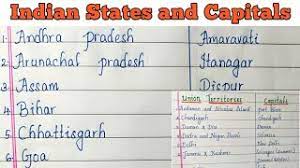 Indian States and Capitals
1. Andhra pradesh Amaravati
2. Arunachal pradesh Itanagar
3. Assam Dispur
4. Bihar
5. Chhattisgarh
6. Goa
Union Territories Capitals
1. Andaman and Nicobar Island Port Blair
2. Chandigarh Chandigarh
3. Daman & Diu Daman
4. Dadra and Nagar Haveli Silvassa
5. Delhi New Delhi
6. Jammu & Kashmir Srinagar (Summer)